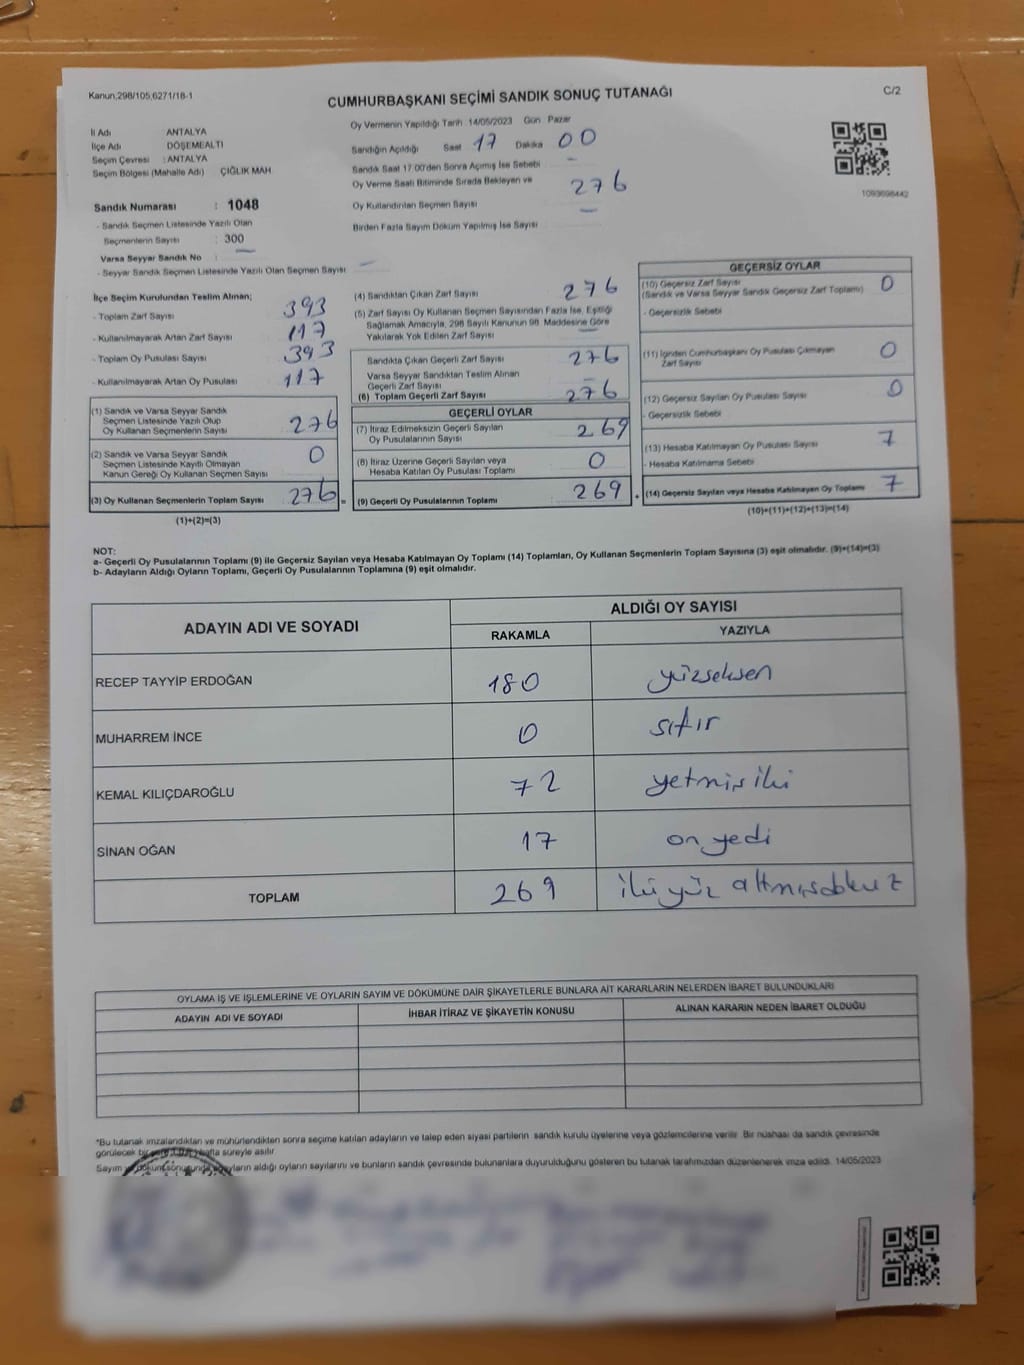 Kanun;298/105;6271/18-1
CUMHURBAŞKANI SEÇİMİ SANDIK SONUÇ TUTANAĞI
C/2
İl Adı ANTALYA
İlçe Adı DÖŞEMEALTI
Seçim Çevresi : ANTALYA
Seçim Bölgesi (Mahalle Adı) ÇIĞLIK MAH.
Sandık Numarası : 1048
- Sandık Seçmen Listesinde Yazılı Olan
Seçmenlerin Sayısı : 300
Varsa Seyyar Sandık No : —
- Seyyar Sandık Seçmen Listesinde Yazılı Olan Seçmen Sayısı : —
Oy Vermenin Yapıldığı Tarih : 14/05/2023 Gün Pazar
Sandığın Açıldığı Saat 17 Dakika 00
Sandık Saat 17:00'den Sonra Açımış İse Sebebi —
Oy Verme Saati Bitiminde Sırada Bekleyen ve
Oy Kullandırılan Seçmen Sayısı 276
Birden Fazla Sayım Döküm Yapılmış İse Sayısı —
1093698442
İlçe Seçim Kurulundan Teslim Alınan;
- Toplam Zarf Sayısı : 393
- Kullanılmayarak Artan Zarf Sayısı : 117
- Toplam Oy Pusulası Sayısı : 393
- Kullanılmayarak Artan Oy Pusulası : 117
(1) Sandık ve Varsa Seyyar Sandık
Seçmen Listesinde Yazılı Olup
Oy Kullanan Seçmenlerin Sayısı : 276
(2) Sandık ve Varsa Seyyar Sandık
Seçmen Listesinde Kayıtlı Olmayan
Kanun Gereği Oy Kullanan Seçmen Sayısı 0
(3) Oy Kullanan Seçmenlerin Toplam Sayısı : 276 =
(1)+(2)=(3)
(4) Sandıktan Çıkan Zarf Sayısı : 276
(5) Zarf Sayısı Oy Kullanan Seçmen Sayısından Fazla İse, Eşitliği
Sağlamak Amacıyla, 298 Sayılı Kanunun 98. Maddesine Göre
Yakılarak Yok Edilen Zarf Sayısı : —
Sandıkta Çıkan Geçerli Zarf Sayısı 276
Varsa Seyyar Sandıktan Teslim Alınan
Geçerli Zarf Sayısı —
(6) Toplam Geçerli Zarf Sayısı 276
GEÇERLİ OYLAR
(7) İtiraz Edilmeksizin Geçerli Sayılan
Oy Pusulalarının Sayısı : 269
(8) İtiraz Üzerine Geçerli Sayılan veya
Hesaba Katılan Oy Pusulası Toplamı 0
(9) Geçerli Oy Pusulalarının Toplamı : 269 +
GEÇERSİZ OYLAR
(10) Geçersiz Zarf Sayısı
(Sandık ve Varsa Seyyar Sandık Geçersiz Zarf Toplamı) 0
- Geçersizlik Sebebi
(11) İçinden Cumhurbaşkanı Oy Pusulası Çıkmayan
Zarf Sayısı 0
(12) Geçersiz Sayılan Oy Pusulası Sayısı 0
- Geçersizlik Sebebi
(13) Hesaba Katılmayan Oy Pusulası Sayısı 7
- Hesaba Katılmama Sebebi
(14) Geçersiz Sayılan veya Hesaba Katılmayan Oy Toplamı 7
(10)+(11)+(12)+(13)=(14)
NOT:
a- Geçerli Oy Pusulalarının Toplamı (9) ile Geçersiz Sayılan veya Hesaba Katılmayan Oy Toplamı (14) Toplamları, Oy Kullanan Seçmenlerin Toplam Sayısına (3) eşit olmalıdır. (9)+(14)=(3)
b- Adayların Aldığı Oyların Toplamı, Geçerli Oy Pusulalarının Toplamına (9) eşit olmalıdır.
ADAYIN ADI VE SOYADI
ALDIĞI OY SAYISI
RAKAMLA YAZIYLA
RECEP TAYYİP ERDOĞAN 180 yüzseksen
MUHARREM İNCE 0 sıfır
KEMAL KILIÇDAROĞLU 72 yetmişiki
SİNAN OĞAN 17 onyedi
TOPLAM 269 ikiyüz altmışdokuz
OYLAMA İŞ VE İŞLEMLERİNE VE OYLARIN SAYIM VE DÖKÜMÜNE DAİR ŞİKAYETLERLE BUNLARA AİT KARARLARIN NELERDEN İBARET BULUNDUKLARI
ADAYIN ADI VE SOYADI İHBAR İTİRAZ VE ŞİKAYETİN KONUSU ALINAN KARARIN NEDEN İBARET OLDUĞU
*Bu tutanak imzalandıktan ve mühürlendikten sonra seçime katılan adayların ve talep eden siyasi partilerin sandık kurulu üyelerine veya gözlemcilerine verilir. Bir nüshası da sandık çevresinde
görülecek bir yere 1 hafta süreyle asılır.
Sayım ve döküm sonunda adayların aldığı oyların sayılarını ve bunların sandık çevresinde bulunanlara duyurulduğunu gösteren bu tutanak tarafımızdan düzenlenerek imza edildi. 14/05/2023